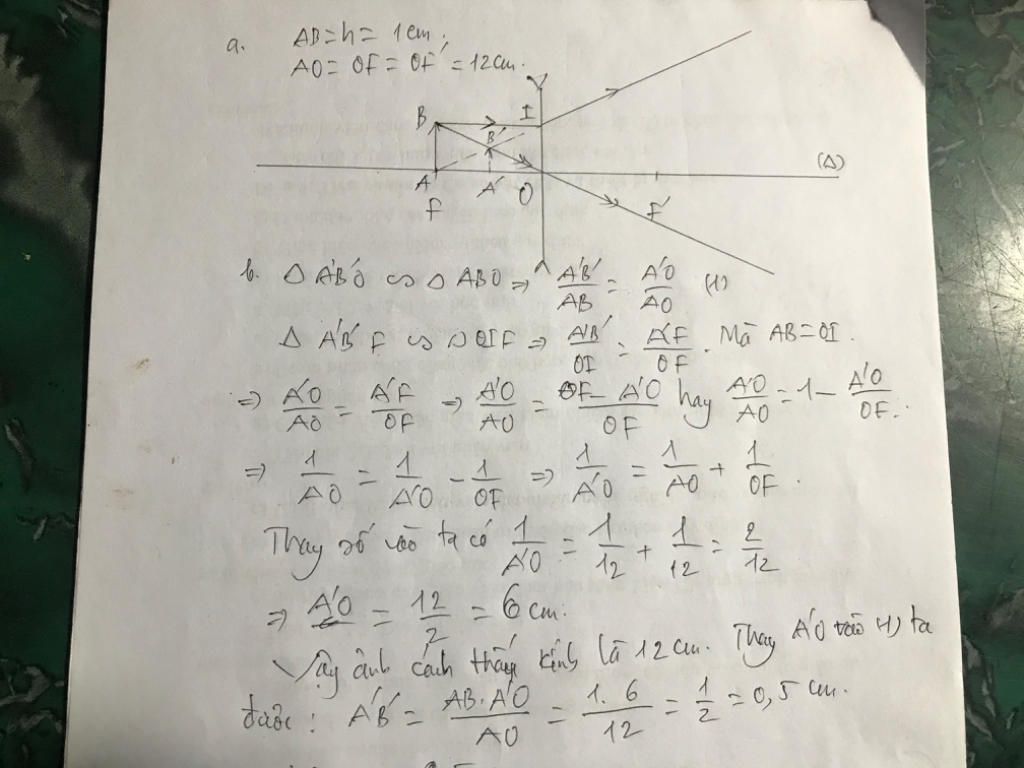 a. AB = h = 1cm.
AO = OF = OF' = 12cm.
B I
B'
(Δ)
A A' O
F F'
b. Δ A'B'O ∽ Δ ABO ⇒ A'B'/AB = A'O/AO (1)
Δ A'B'F ∽ Δ OIF ⇒ A'B'/OI = A'F/OF. Mà AB = OI.
⇒ A'O/AO = A'F/OF ⇒ A'O/AO = OF - A'O/OF hay A'O/AO = 1 - A'O/OF.
⇒ 1/AO = 1/A'O - 1/OF ⇒ 1/A'O = 1/AO + 1/OF.
Thay số vào ta có 1/A'O = 1/12 + 1/12 = 2/12
⇒ A'O = 12/2 = 6 cm.
Vậy ảnh cách thấu kính là 12 cm. Thay A'O vào (1) ta
được: A'B' = AB.A'O/AO = 1.6/12 = 1/2 = 0,5 cm.